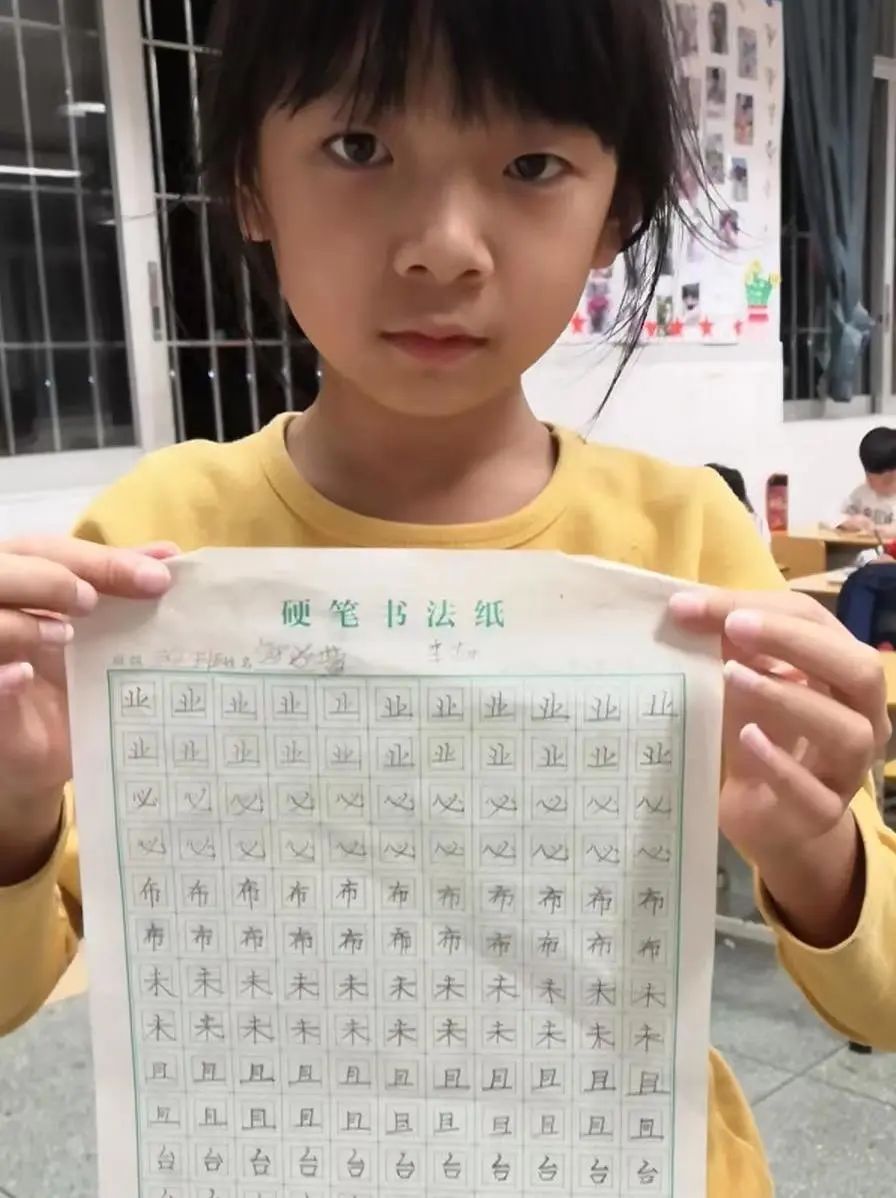 硬笔书法纸
班级 姓名
业业业业业业业业业业业
业业业业业业业业业业业
必必必必必必必必必必必
必必必必必必必必必必必
布布布布布布布布布布布
布布布布布布布布布布布
未未未未未未未未未未未
未未未未未未未未未未未
且且且且且且且且且且且
且且且且且且且且且且且
台台台台台台台台台台台